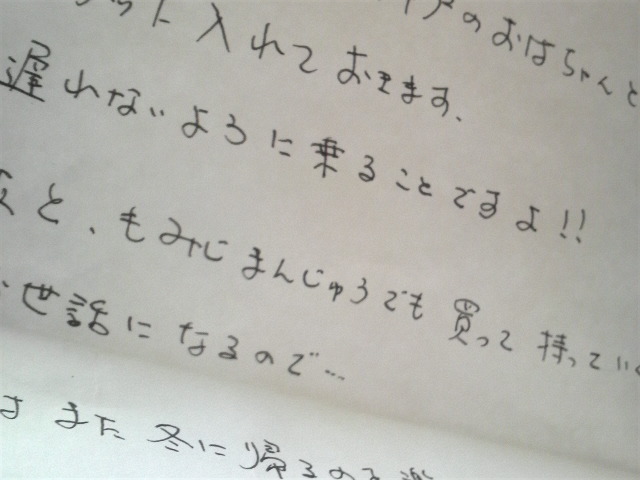 に入れておきます。 のおばちゃんと
遅れないように乗ることですよ!!
と、もみじまんじゅうでも買って持ってい
世話になるので…
また冬に帰るのを楽